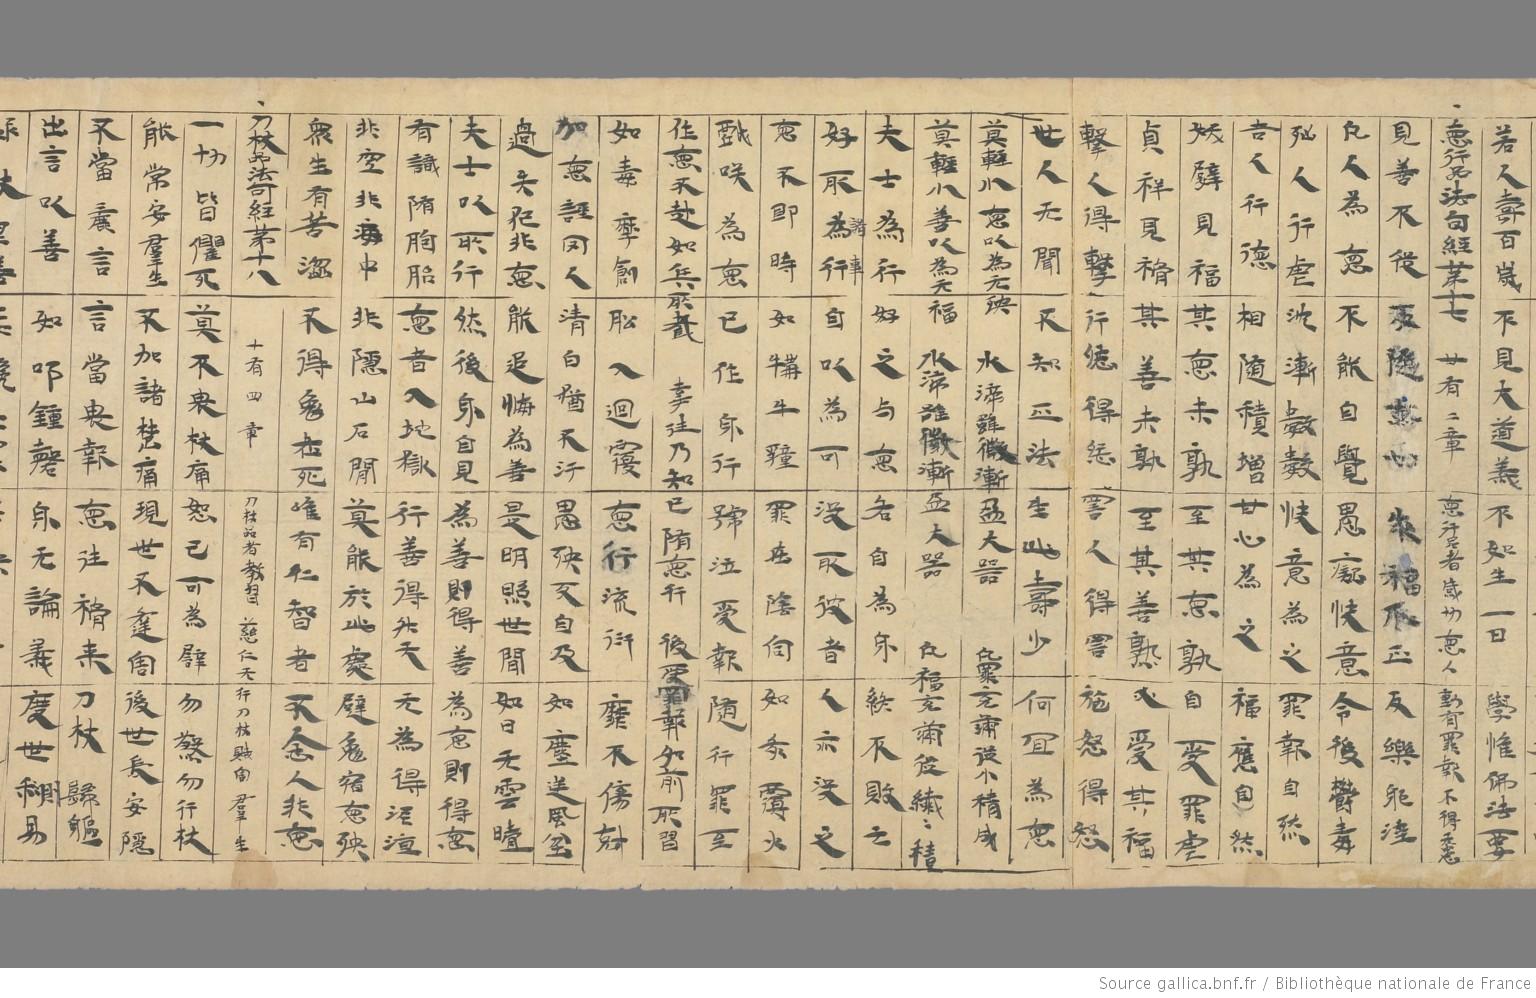 若人壽百歲 不見大道義 不如生一日 學惟佛法要
惡行品法句經第十七 廿有二章 惡行品者感切惡人 動有罪報不得無患
見善不從 反隨惡心 求福不正 反樂邪婬
凡人為惡 不能自覺 愚癡快意 令後鬱毒
殃人行虐 沈漸數數 快意為之 罪報自然
吉人行德 相隨積增 甘心為之 福應自然
妖孽見福 其惡未熟 至其惡熟 自受罪虐
貞祥見禍 其善未熟 至其善熟 必受其福
擊人得擊 行怨得怨 罵人得罵 施怒得怒
世人无聞 不知正法 生此壽少 何宜為惡
莫輕小惡以為无殃 水渧雖微漸盈大器 凡罪充滿從小積成
莫輕小善以為无福 水渧雖微漸盈大器 凡福充滿從纖纖積
夫士為行 好之与惡 各自為身 終不敗亡
好取為行 自以為可 沒取彼者 人亦沒之
諸事
惡不即時 如𤛓牛𤚲 罪在陰伺 如灰覆火
戲咲為惡 已作身行 號泣受報 隨行罪至
作惡不起如兵所截 牽往乃知已墮惡行 後受罪報如前所習
如毒摩創 船入洄澓 惡行流衍 靡不傷尅
加惡誣罔人 清白猶不汙 愚殃反自及 如塵逆風坌
過失犯非惡 能追悔為善 是明照世間 如日无雲曀
夫士以所行 然後身自見 為善則得善 為惡則得惡
有識墮胞胎 惡者入地獄 行善得升天 无為得泥洹
非空非海中 非隱山石間 莫能於此處 避免宿惡殃
衆生有苦惱 不得免老死 唯有仁智者 不念人非惡
刀杖品法句經第十八 十有四章 刀杖品者教習慈仁无行刀杖賊害羣生
一切皆懼死 莫不畏杖痛 恕己可為譬 勿煞勿行杖
能常安羣生 不加諸楚痛 現世不逢害 後世長安隱
不當麁言 言當畏報 惡往禍來 刀杖歸軀
出言以善 如叩鍾磬 身无論義 度世則易